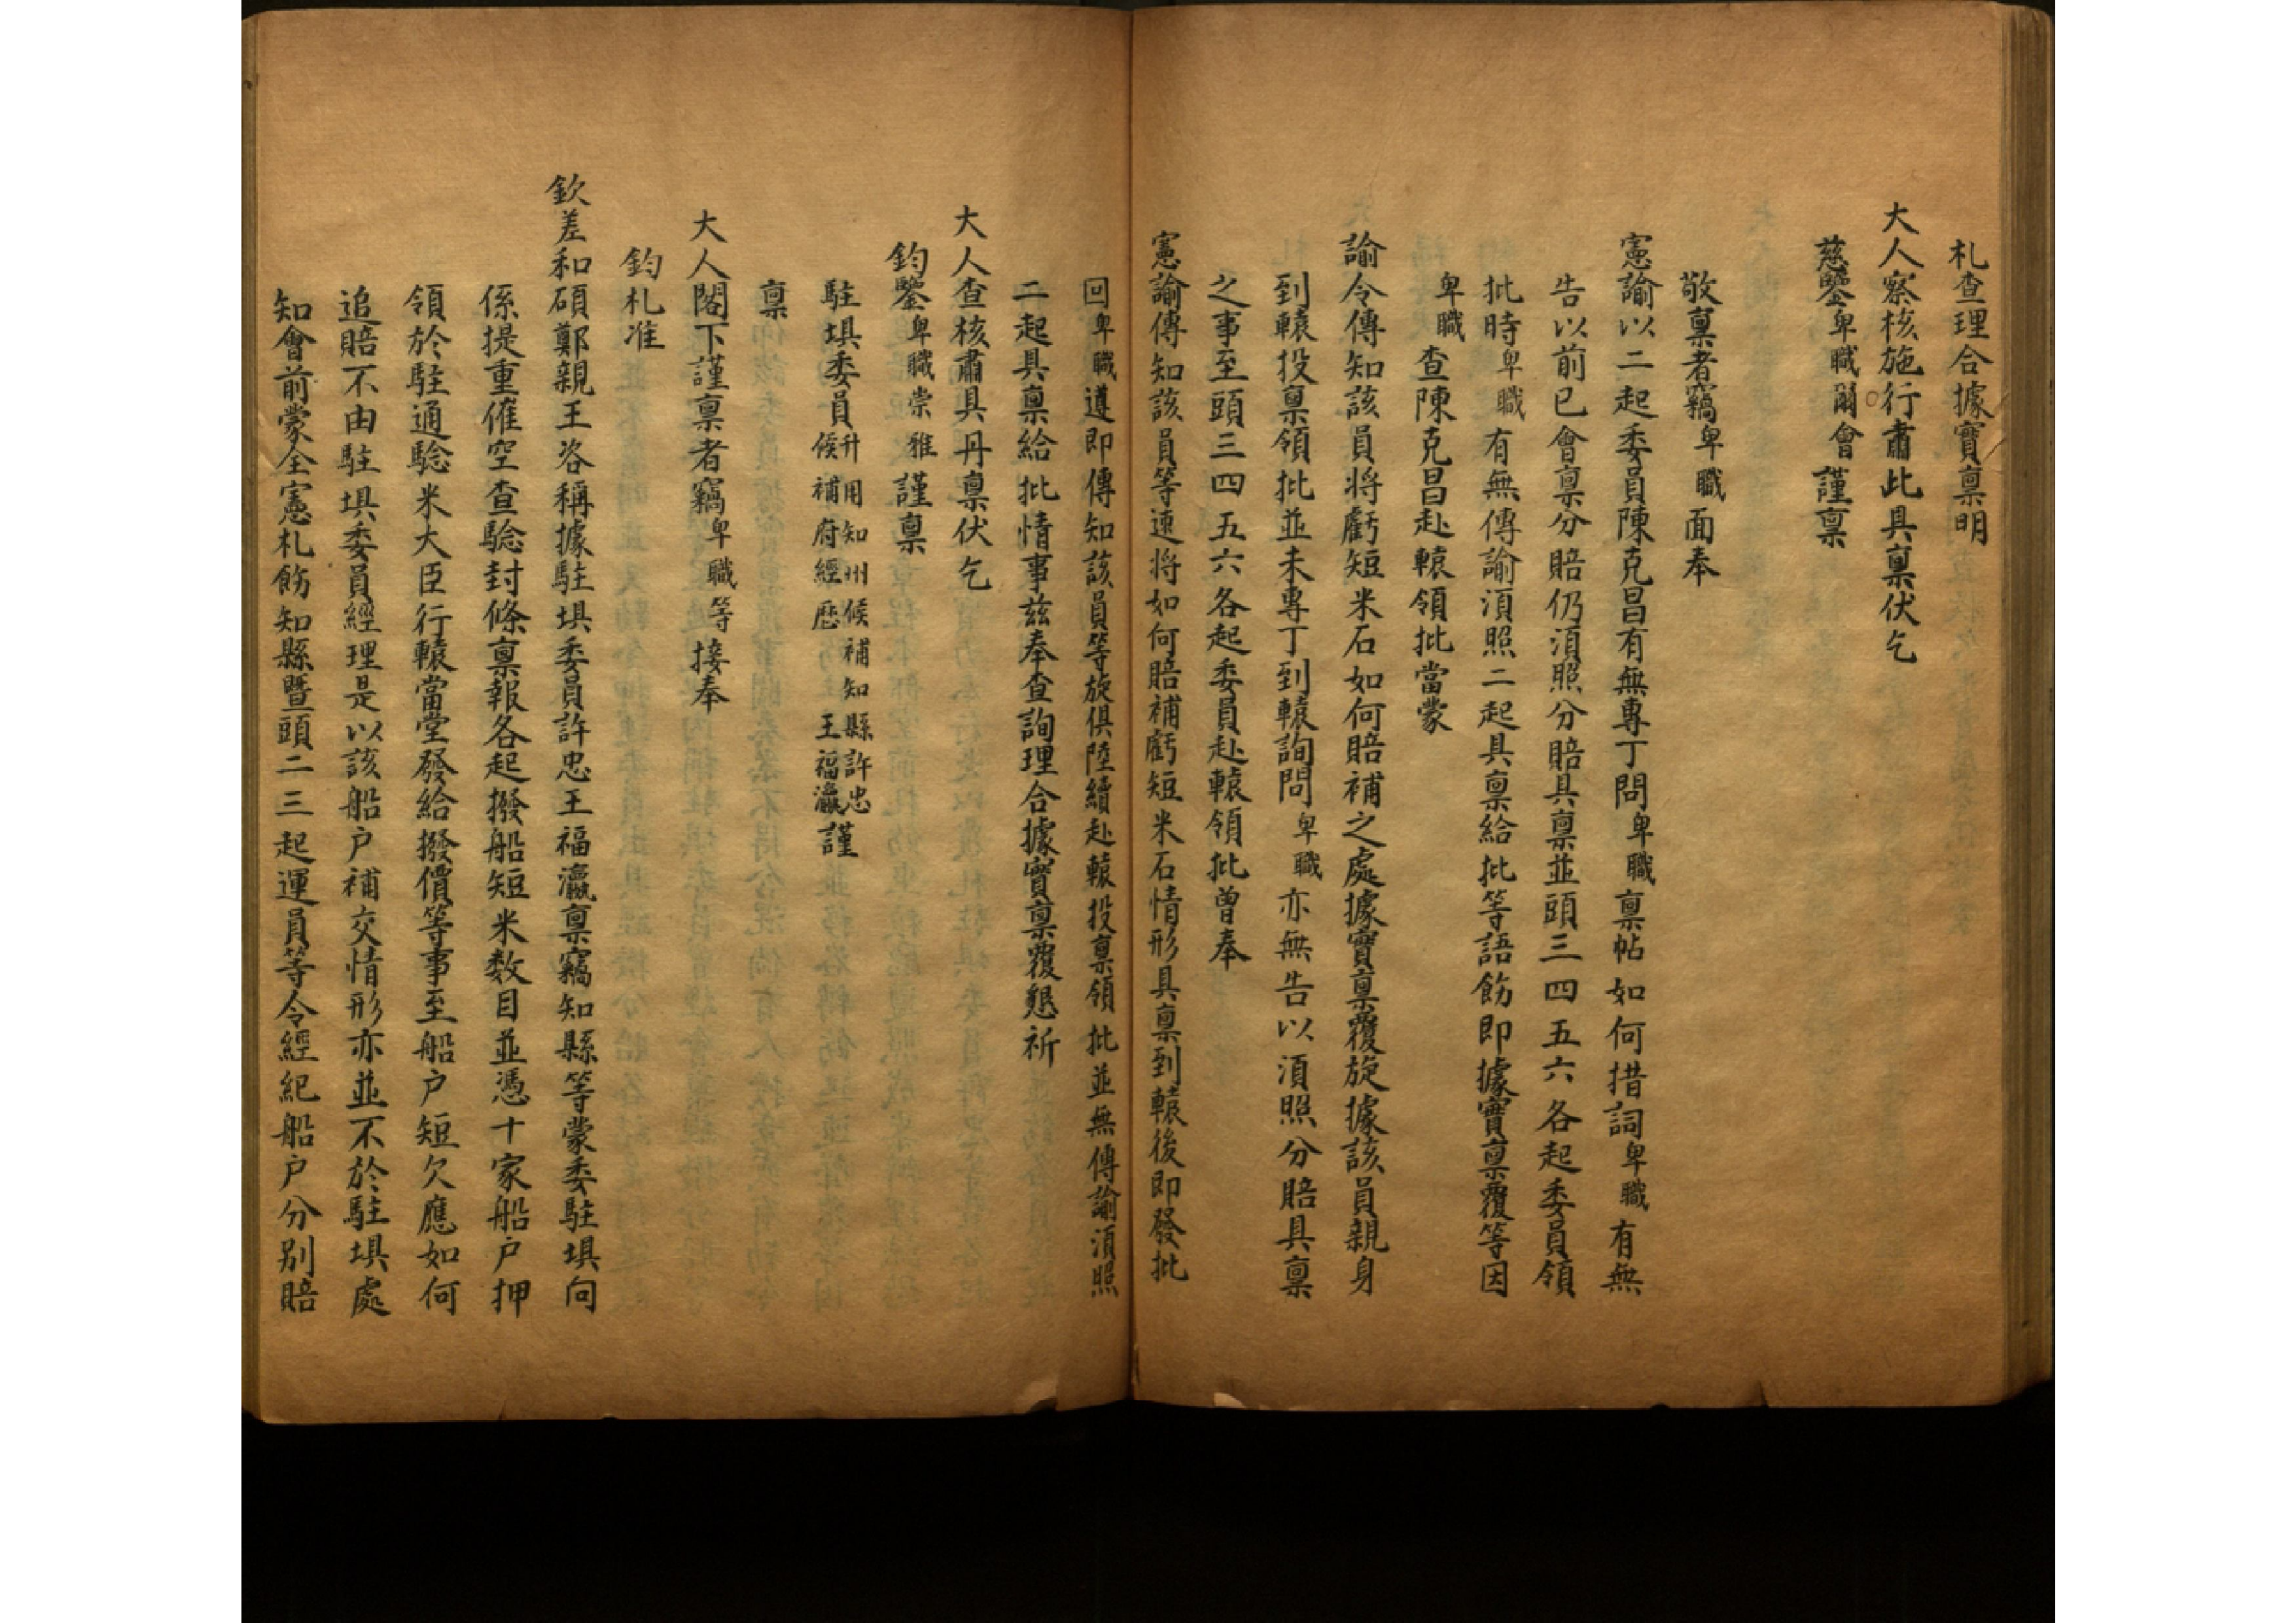 札查理合據實禀明
大人察核施行肅此具禀伏乞
慈鑒卑職爾會謹禀
敬禀者竊卑職面奉
憲諭以二起委員陳克昌有無專丁問卑職禀帖如何措詞卑職有無
告以前已會禀分賠仍湏照分賠具禀並頭三四五六各起委員領
批時卑職有無傳諭湏照二起具禀給批等語飭即據實禀覆等因
卑職查陳克昌赴轅領批當蒙
諭令傳知該員將虧短米石如何賠補之處據實禀覆旋據該員親身
到轅投禀領批並未專丁到轅詢問卑職亦無告以湏照分賠具禀
之事至頭三四五六各起委員赴轅領批曾奉
憲諭傳知該員等速將如何賠補虧短米石情形具禀到轅後即發批
回卑職遵即傳知該員等旋俱陸續赴轅投禀領批並無傳諭湏照
二起具禀給批情事茲奉查詢理合據實禀覆懇祈
大人查核肅具丹禀伏乞
鈞鑒卑職崇雅謹禀
駐垻委員升用知州候補知縣許忠
候補府經歷王福瀛謹
禀
大人閣下謹禀者竊卑職等接奉
鈞札准
欽差和碩鄭親王咨稱據駐垻委員許忠王福瀛禀竊知縣等蒙委駐垻向
係提重催空查驗封條禀報各起撥船短米数目並憑十家船户押
領於駐通驗米大臣行轅當堂發給撥價等事至船户短欠應如何
追賠不由駐垻委員經理是以該船户補交情形亦並不於駐垻處
知會前蒙全憲札飭知縣暨頭二三起運員等令經紀船户分别賠